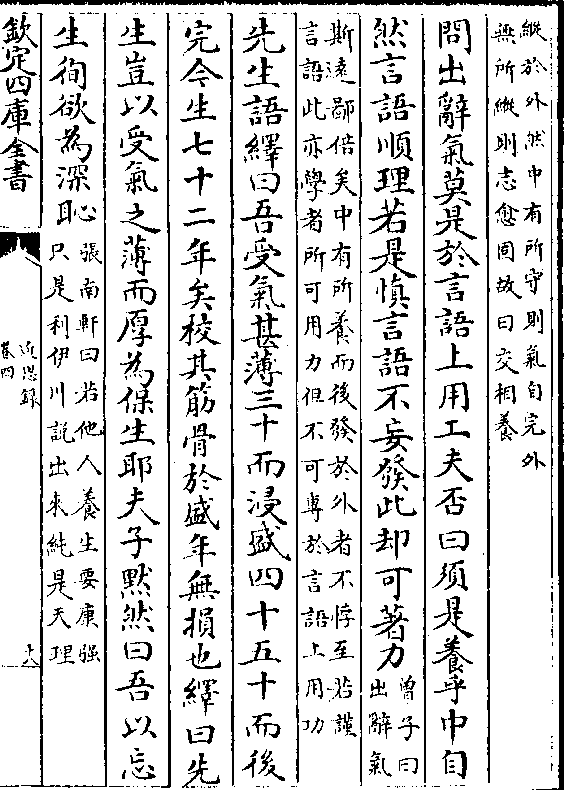 縱於外然中有所守則氣自完外
無所縱則志愈固故曰交相養
問出辭氣莫是於言語上用工夫否曰須是養乎中自
然言語順理若是慎言語不妄發此却可著力
曾子曰
出辭氣
斯遠鄙倍矣中有所養而後發於外者不悖至若謹
言語此亦學者所可用力但不可專於言語上用功
先生語繹曰吾受氣甚薄三十而浸盛四十五十而後
完今生七十二年矣校其筋骨於盛年無損也繹曰先
生豈以受氣之薄而厚為保生耶夫子默然曰吾以忘
生徇欲為深恥
張南軒曰若他人養生要康强
只是利伊川説出來純是天理
欽定四庫全書
近思録
卷四
十八